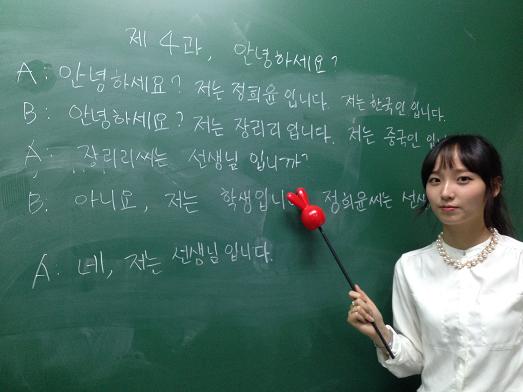 제 4과, 안녕하세요?
A: 안녕하세요? 저는 정희윤 입니다. 저는 한국인 입니다.
B: 안녕하세요? 저는 장리리 입니다. 저는 중국인
A: 장리리씨는 선생님 입니까?
B. 아니요, 저는 학생입니 정희윤씨는
A. 네, 저는 선생님 입니다.